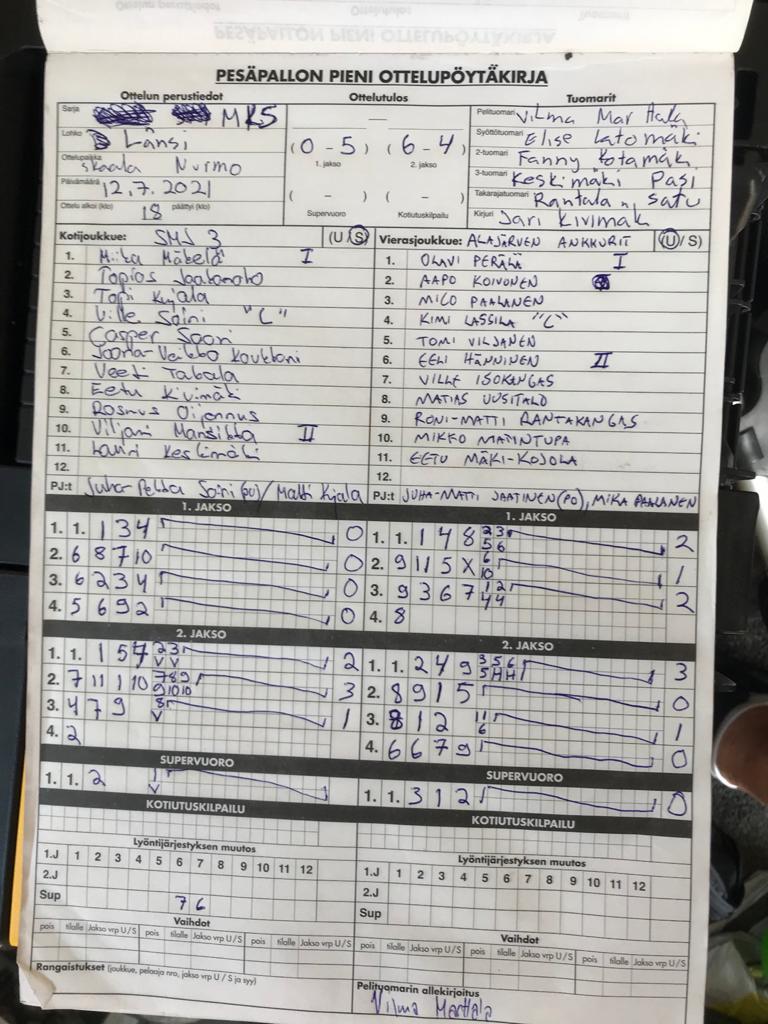 PESÄPALLON PIENI OTTELUPÖYTÄKIRJA
Ottelun perustiedot
Sarja MK5
Lohko Länsi
Ottelupaikka Skaala Nurmo
Päivämäärä 12.7.2021
Ottelu alkoi (klo) 18 päättyi (klo)
Ottelutulos
(0 - 5) (6 - 4)
1. jakso 2. jakso
( - ) ( - )
Supervuoro Kotiutuskilpailu
Tuomarit
Pelituomari Vilma Marttala
Syöttötuomari Elise Latomäki
2-tuomari Fanny Potamäki
3-tuomari Keskimäki Pasi
Takarajatuomari Rantala n, Satu
Kirjuri Jari Kivimäk
Kotijoukkue: SMJ 3 (U/S)
1. Miika Mäkelä I
2. Topias
3. Topi Kujala
4. Ville Soini "C"
5. Casper Saari
6. Joona-Veikko Koukkari
7. Veeti Takala
8. Eetu Kivimäki
9. Rasmus Ojennus
10. Viljami Mansikka II
11. Lauri Keskimäki
12.
PJ:t Juha-Pekka Soini (PU) / Matti Kujala
Vierasjoukkue: ALAJÄRVEN ANKKURIT (U/S)
1. OLAVI PERÄLÄ I
2. AAPO KOIVONEN
3. MICO PAALANEN
4. KIMI LASSILA "C"
5. TOMI VILJANEN
6. EELI HÄNNINEN II
7. VILLE ISOKANGAS
8. MATIAS UUSITALO
9. RONI-MATTI RANTAKANGAS
10. MIKKO MATINTUPA
11. EETU MÄKI-KOJOLA
12.
PJ:t JUHA-MATTI JAATINEN (PO), MIKA PAALANEN
1. JAKSO
1. 1. 1 3 4 0
2. 6 8 7 10 0
3. 6 2 3 4 0
4. 5 6 9 2 0
1. JAKSO
1. 1. 1 4 8 2 3 2
5 6
2. 9 11 5 X 6 1
10
3. 9 3 6 7 1 2 2
4 4
4. 8
2. JAKSO
1. 1. 1 5 7 2 3 2
V V
2. 7 11 1 10 7 8 9 3
9 10 10
3. 4 7 9 8 1
V
4. 2
2. JAKSO
1. 1. 2 4 9 3 5 6 3
5 H H
2. 8 9 1 5 0
3. 8 1 2 11 1
6
4. 6 6 7 9 0
SUPERVUORO
1. 1. 2 1
V
SUPERVUORO
1. 1. 3 1 2 0
KOTIUTUSKILPAILU
KOTIUTUSKILPAILU
Lyöntijärjestyksen muutos
1.J 1 2 3 4 5 6 7 8 9 10 11 12
2.J
Sup 7 6
Lyöntijärjestyksen muutos
1.J 1 2 3 4 5 6 7 8 9 10 11 12
2.J
Sup
Vaihdot
pois tilalle Jakso vrp U/S pois tilalle Jakso vrp U/S pois tilalle Jakso vrp U/S
Vaihdot
pois tilalle Jakso vrp U/S pois tilalle Jakso vrp U/S pois tilalle Jakso vrp U/S
Rangaistukset (joukkue, pelaaja nro, jakso vrp U/S ja syy)
Pelituomarin allekirjoitus
Vilma Marttala